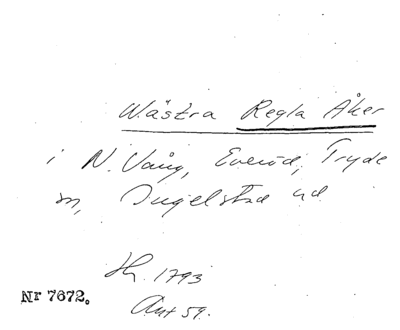 Wästra Regla Åker
i N. Vång, Everöd, Tryde
sn, Ingelstad hd
Hh. 1793
Akt 59.
Nr 7672.